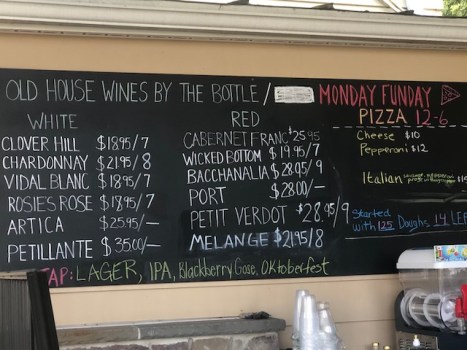 OLD HOUSE WINES BY THE BOTTLE/
MONDAY FUNDAY
PIZZA 12-6
WHITE
CLOVER HILL $18.95/7
CHARDONNAY $21.95/8
VIDAL BLANC $18.95/7
ROSIE'S ROSE $18.95/7
ARTICA $25.95/—
PETILLANTE $35.00/—
RED
CABERNET FRANC $25.95
WICKED BOTTOM $19.95/7
BACCHANALIA $28.05/9
PORT $28.00/—
PETIT VERDOT $28.95/9
MELANGE $21.95/8
Cheese $10
Pepperoni $12
Italian
Started
with 125 Doughs 14 LEF
TAP: LAGER, IPA, Blackberry Gose, Oktoberfest